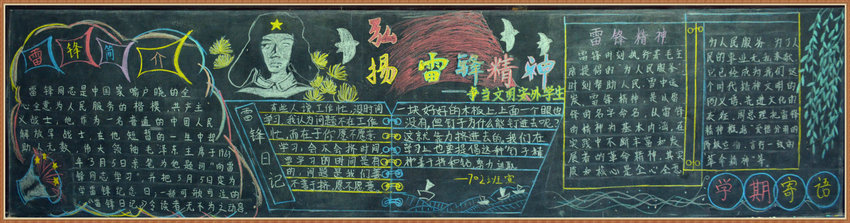 雷锋简介
雷锋同志是中国家喻户晓的全
心全意为人民服务的楷模，共产主
义战士；他作为一名普通的中国人民
解放军战士，在他短暂的一生中帮
助了人无数，伟大领袖毛泽东主席于1963
年3月5日亲笔为他题词"向雷
锋同志学习"，并把3月5日定为
学雷锋纪念日；
弘揚雷锋精神
争当文明
雷锋日记
有些人说工作忙、没时间
学习，我认为问题不在工作
忙，而在于你愿不愿意
学习，会不会挤时间
要学习的时间是有
的，问题是我们善
不善于挤，愿不愿意
一块好好的木板，上上面一个眼也
没有，但钉子为什么能钉进去呢？
这就是靠力挤进去的，我们在
学习上也要提倡这种钉子精
神善于挤和钻
702班宣
雷锋精神
雷锋时刻执行着毛主
席提倡的"为人民服务"
时刻帮助人民，常中
雷锋精神，是以雷
锋的名字命名，以雷锋
的精神为基本内涵，在
实践中不断丰富和发
展着的革命精神，其实
质和核心是全心全意
为人民服务，为了人
民的事业无私奉献
它已经成为我们这
个时代精神文明的
同义语、先进文化的
表征。周总理把雷锋
精神概括
革命精神"等。
学期寄语